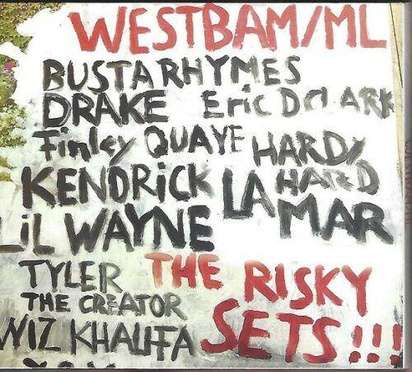 WESTBAM/ML
BUSTA RHYMES
DRAKE Eric D Clark
Finley QUAYE HARDY
KENDRICK LAMAR HARD
LIL WAYNE
TYLER THE RISKY
THE CREATOR
WIZ KHALIFA SETS!!!